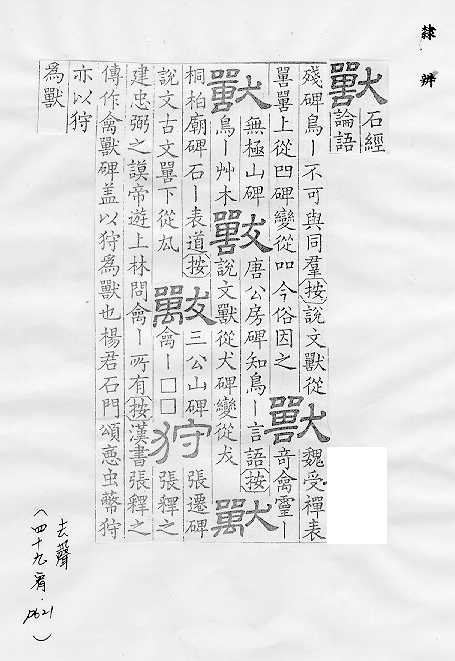 隸辨
獸 石經
論語
殘碑鳥ー不可與同羣按說文獸從
嘼嘼上從凹碑變從吅今俗因之
獸 魏受禪表
奇禽靈ー
獸 無極山碑
鳥ー艸木
獸 唐公房碑知鳥ー言語按
說文獸從犬碑變從犮
獸
桐柏廟碑石ー表道按
說文古文嘼下從厹
獸 三公山碑
禽ー□□
狩 張遷碑
張釋之
建忠弼之謨帝遊上林問禽ー所有按漢書張釋之
傳作禽獸碑盖以狩爲獸也楊君石門頌惡虫狩
亦以狩
爲獸
去聲
(四十九宥·p621)